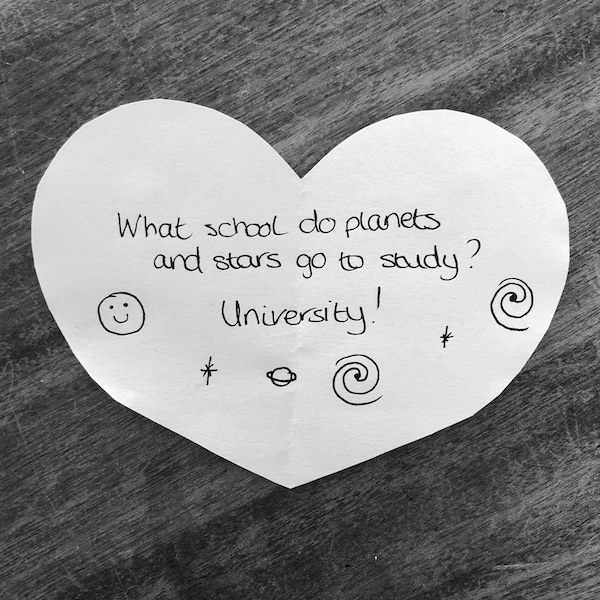 What school do planets
and stars go to study?
University!